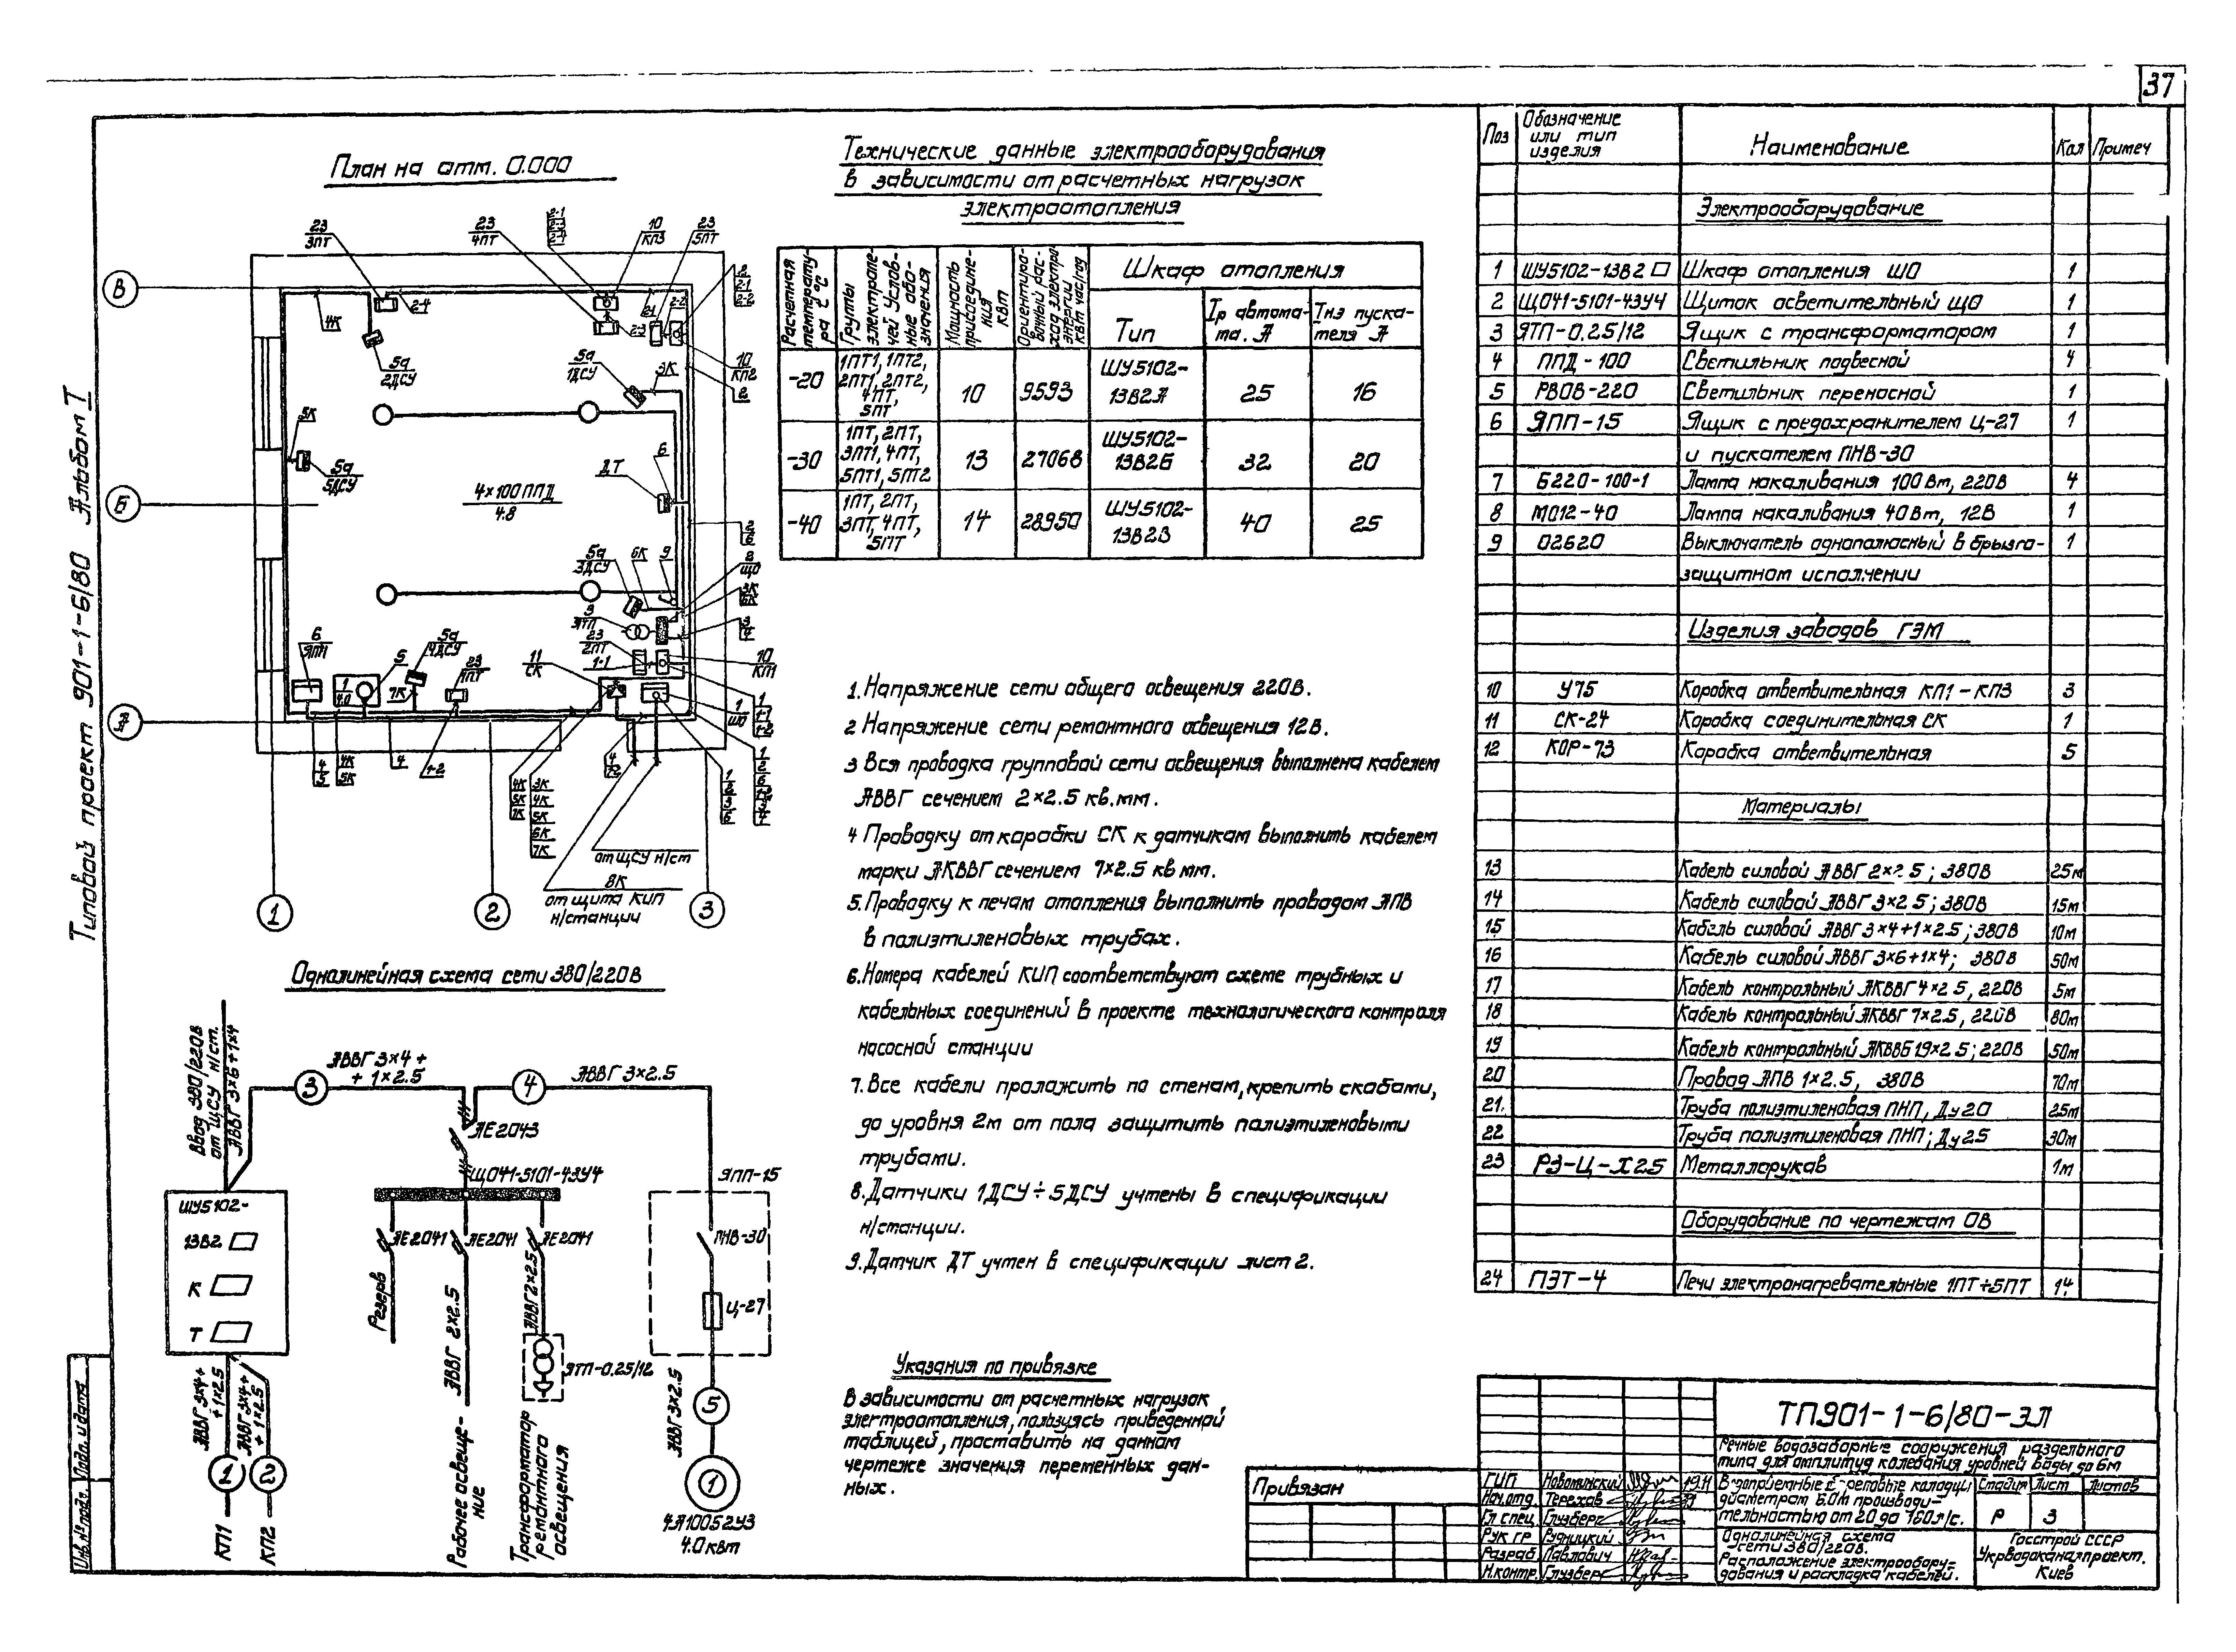 37
Типовой проект 901-1-6/80 Альбом I
План на отм. 0.000
23
3ПТ
23
4ПТ
2-1
2-3
10
КП3
23
5ПТ
2
2-1
2-2
В
4К
2-4
2-3
2-1
2-2
5а
2ДСУ
5а
1ДСУ
3К
10
КП2
2
5К
5а
5ДСУ
Б
4×100 ППД
4.8
ДТ
6
2
6
5а
3ДСУ
6К
9
2
ЩО
3К
6К
3
ЯТП
3
4
23
2ПТ
1-1
10
КП1
6
ЯПП
1
4.0
5
5а
4ДСУ
7К
23
1ПТ
11
СК
1
ШО
1
1-1
1-2
4
5
4К
5К
4
1-2
4К
5К
7К
3К
4К
5К
6К
7К
от ЩСУ н/ст
8К
от щита КИП
н/станции
1
2
3
6
1
2
3
Однолинейная схема сети 380/220В
Ввод 380/220В
от ЩСУ н/ст.
АВВГ 3×6+1×4
3
АВВГ 3×4 +
+ 1×2.5
4
АВВГ 3×2.5
АЕ2043
ЩО41-5101-43У4
ЯПП-15
ШУ5102-
13В2
К
Т
АЕ2041
АЕ2041
АЕ2041
ПНВ-30
Ц-27
Резерв
АВВГ 2×2.5
АВВГ 2×2.5
ЯТП-0.25/12
АВВГ 3×4+
+ 1×2.5
АВВГ 3×4+
+ 1×2.5
АВВГ 3×2.5
1
2
5
1
КП1
КП2
Рабочее освеще-
ние
Трансформатор
ремонтного
освещения
4А100S2У3
4.0 кВт
Технические данные электрооборудования
в зависимости от расчетных нагрузок
электроотопления
Расчетная температура t°С
Группы электропечей Условные обозначения
Мощность присоединения кВт
Ориентировочный расход электроэнергии кВт час/год
Шкаф отопления
Тип
Iр автома-
та. А
Iнэ пуска-
теля А
-20
1ПТ1, 1ПТ2,
2ПТ1, 2ПТ2,
4ПТ,
5ПТ
10
9593
ШУ5102-
13В2А
25
16
-30
1ПТ, 2ПТ,
3ПТ1, 4ПТ,
5ПТ1, 5ПТ2
13
27068
ШУ5102-
13В2Б
32
20
-40
1ПТ, 2ПТ,
3ПТ, 4ПТ,
5ПТ
14
28950
ШУ5102-
13В2В
40
25
1. Напряжение сети общего освещения 220В.
2 Напряжение сети ремонтного освещения 12В.
3 Вся проводка групповой сети освещения выполнена кабелем
АВВГ сечением 2×2.5 кв.мм.
4 Проводку от коробки СК к датчикам выполнить кабелем
марки АКВВГ сечением 7×2.5 кв мм.
5. Проводку к печам отопления выполнить проводом АПВ
в полиэтиленовых трубах.
6. Номера кабелей КИП соответствуют схеме трубных и
кабельных соединений в проекте технологического контроля
насосной станции
7. Все кабели проложить по стенам, крепить скобами,
до уровня 2м от пола защитить полиэтиленовыми
трубами.
8. Датчики 1ДСУ÷5ДСУ учтены в спецификации
н/станции.
9. Датчик ДТ учтен в спецификации лист 2.
Указания по привязке
В зависимости от расчетных нагрузок
электроотопления, пользуясь приведенной
таблицей, проставить на данном
чертеже значения переменных дан-
ных.
Поз Обозначение или тип изделия Наименование Кол Примеч
Электрооборудование
1 ШУ5102-13В2 Шкаф отопления ШО 1
2 ЩО41-5101-43У4 Щиток осветительный ЩО 1
3 ЯТП-0.25/12 Ящик с трансформатором 1
4 ППД-100 Светильник подвесной 4
5 РВОВ-220 Светильник переносной 1
6 ЯПП-15 Ящик с предохранителем Ц-27 1
и пускателем ПНВ-30
7 Б220-100-1 Лампа накаливания 100Вт, 220В 4
8 МО12-40 Лампа накаливания 40Вт, 12В 1
9 02620 Выключатель однополюсный в брызго- 1
защитном исполнении
Изделия заводов ГЭМ
10 У75 Коробка ответвительная КП1-КП3 3
11 СК-24 Коробка соединительная СК 1
12 КОР-73 Коробка ответвительная 5
Материалы
13 Кабель силовой АВВГ 2×2.5; 380В 25м
14 Кабель силовой АВВГ 3×2.5; 380В 15м
15 Кабель силовой АВВГ 3×4+1×2.5; 380В 10м
16 Кабель силовой АВВГ 3×6+1×4; 380В 50м
17 Кабель контрольный АКВВГ 4×2.5, 220В 5м
18 Кабель контрольный АКВВГ 7×2.5, 220В 80м
19 Кабель контрольный АКВВБ 19×2.5; 220В 50м
20 Провод АПВ 1×2.5, 380В 70м
21. Труба полиэтиленовая ПНП, Ду20 25м
22 Труба полиэтиленовая ПНП; Ду25 30м
23 РЗ-Ц-Х25 Металлорукав 1м
Оборудование по чертежам ОВ
24 ПЭТ-4 Печи электронагревательные 1ПТ÷5ПТ 14
Привязан
ТП901-1-6/80-ЭЛ
Речные водозаборные сооружения раздельного
типа для амплитуд колебания уровней воды до 6м
ГИП
Нач.отд. Терехов
Гл спец. Глузберг
Рук гр Рудницкий
Разраб Павлович
Н.контр. Глузберг
Водоприемные береговые колодцы
диаметром 6.0м производи-
тельностью от 20 до 160 л/с.
Стадия Лист Листов
Р 3
Однолинейная схема
сети 380/220В.
Расположение электрообору-
дования и раскладка кабелей.
Госстрой СССР
Укрводоканалпроект.
Киев
Подп. и дата
Инв.№ подл.